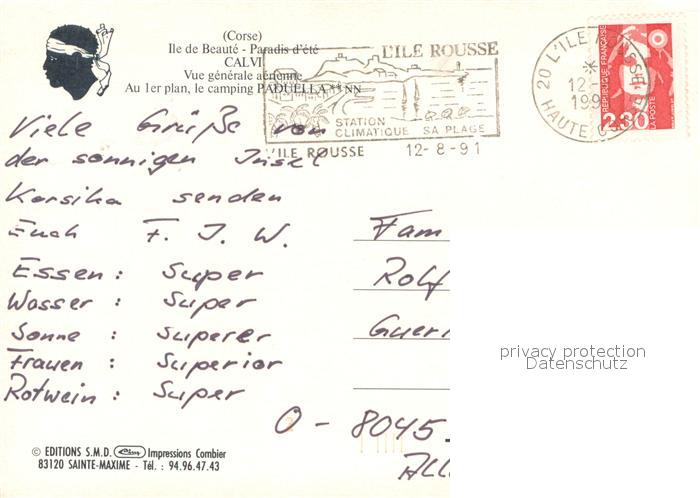 (Corse)
Ile de Beauté - Paradis d'été
CALVI
Vue générale aérienne
Au 1er plan, le camping PADUELLA ** NN
L'ILE ROUSSE
STATION
CLIMATIQUE SA PLAGE
L'ILE ROUSSE 12-8-91
20 L'ILE
12-
199
HAUTE CO
REPUBLIQUE FRANÇAISE
2,30
LA POSTE
Viele Grüße von
der sonnigen Insel
Korsika senden
Euch F. J. W.
Essen : Super
Wasser : Super
Sonne : Superer
Frauen : Superior
Rotwein : Super
Fam
Rolf
Gueri
O - 8045
ALL
privacy protection
Datenschutz
© EDITIONS S.M.D. Cim Impressions Combier
83120 SAINTE-MAXIME - Tél. : 94.96.47.43